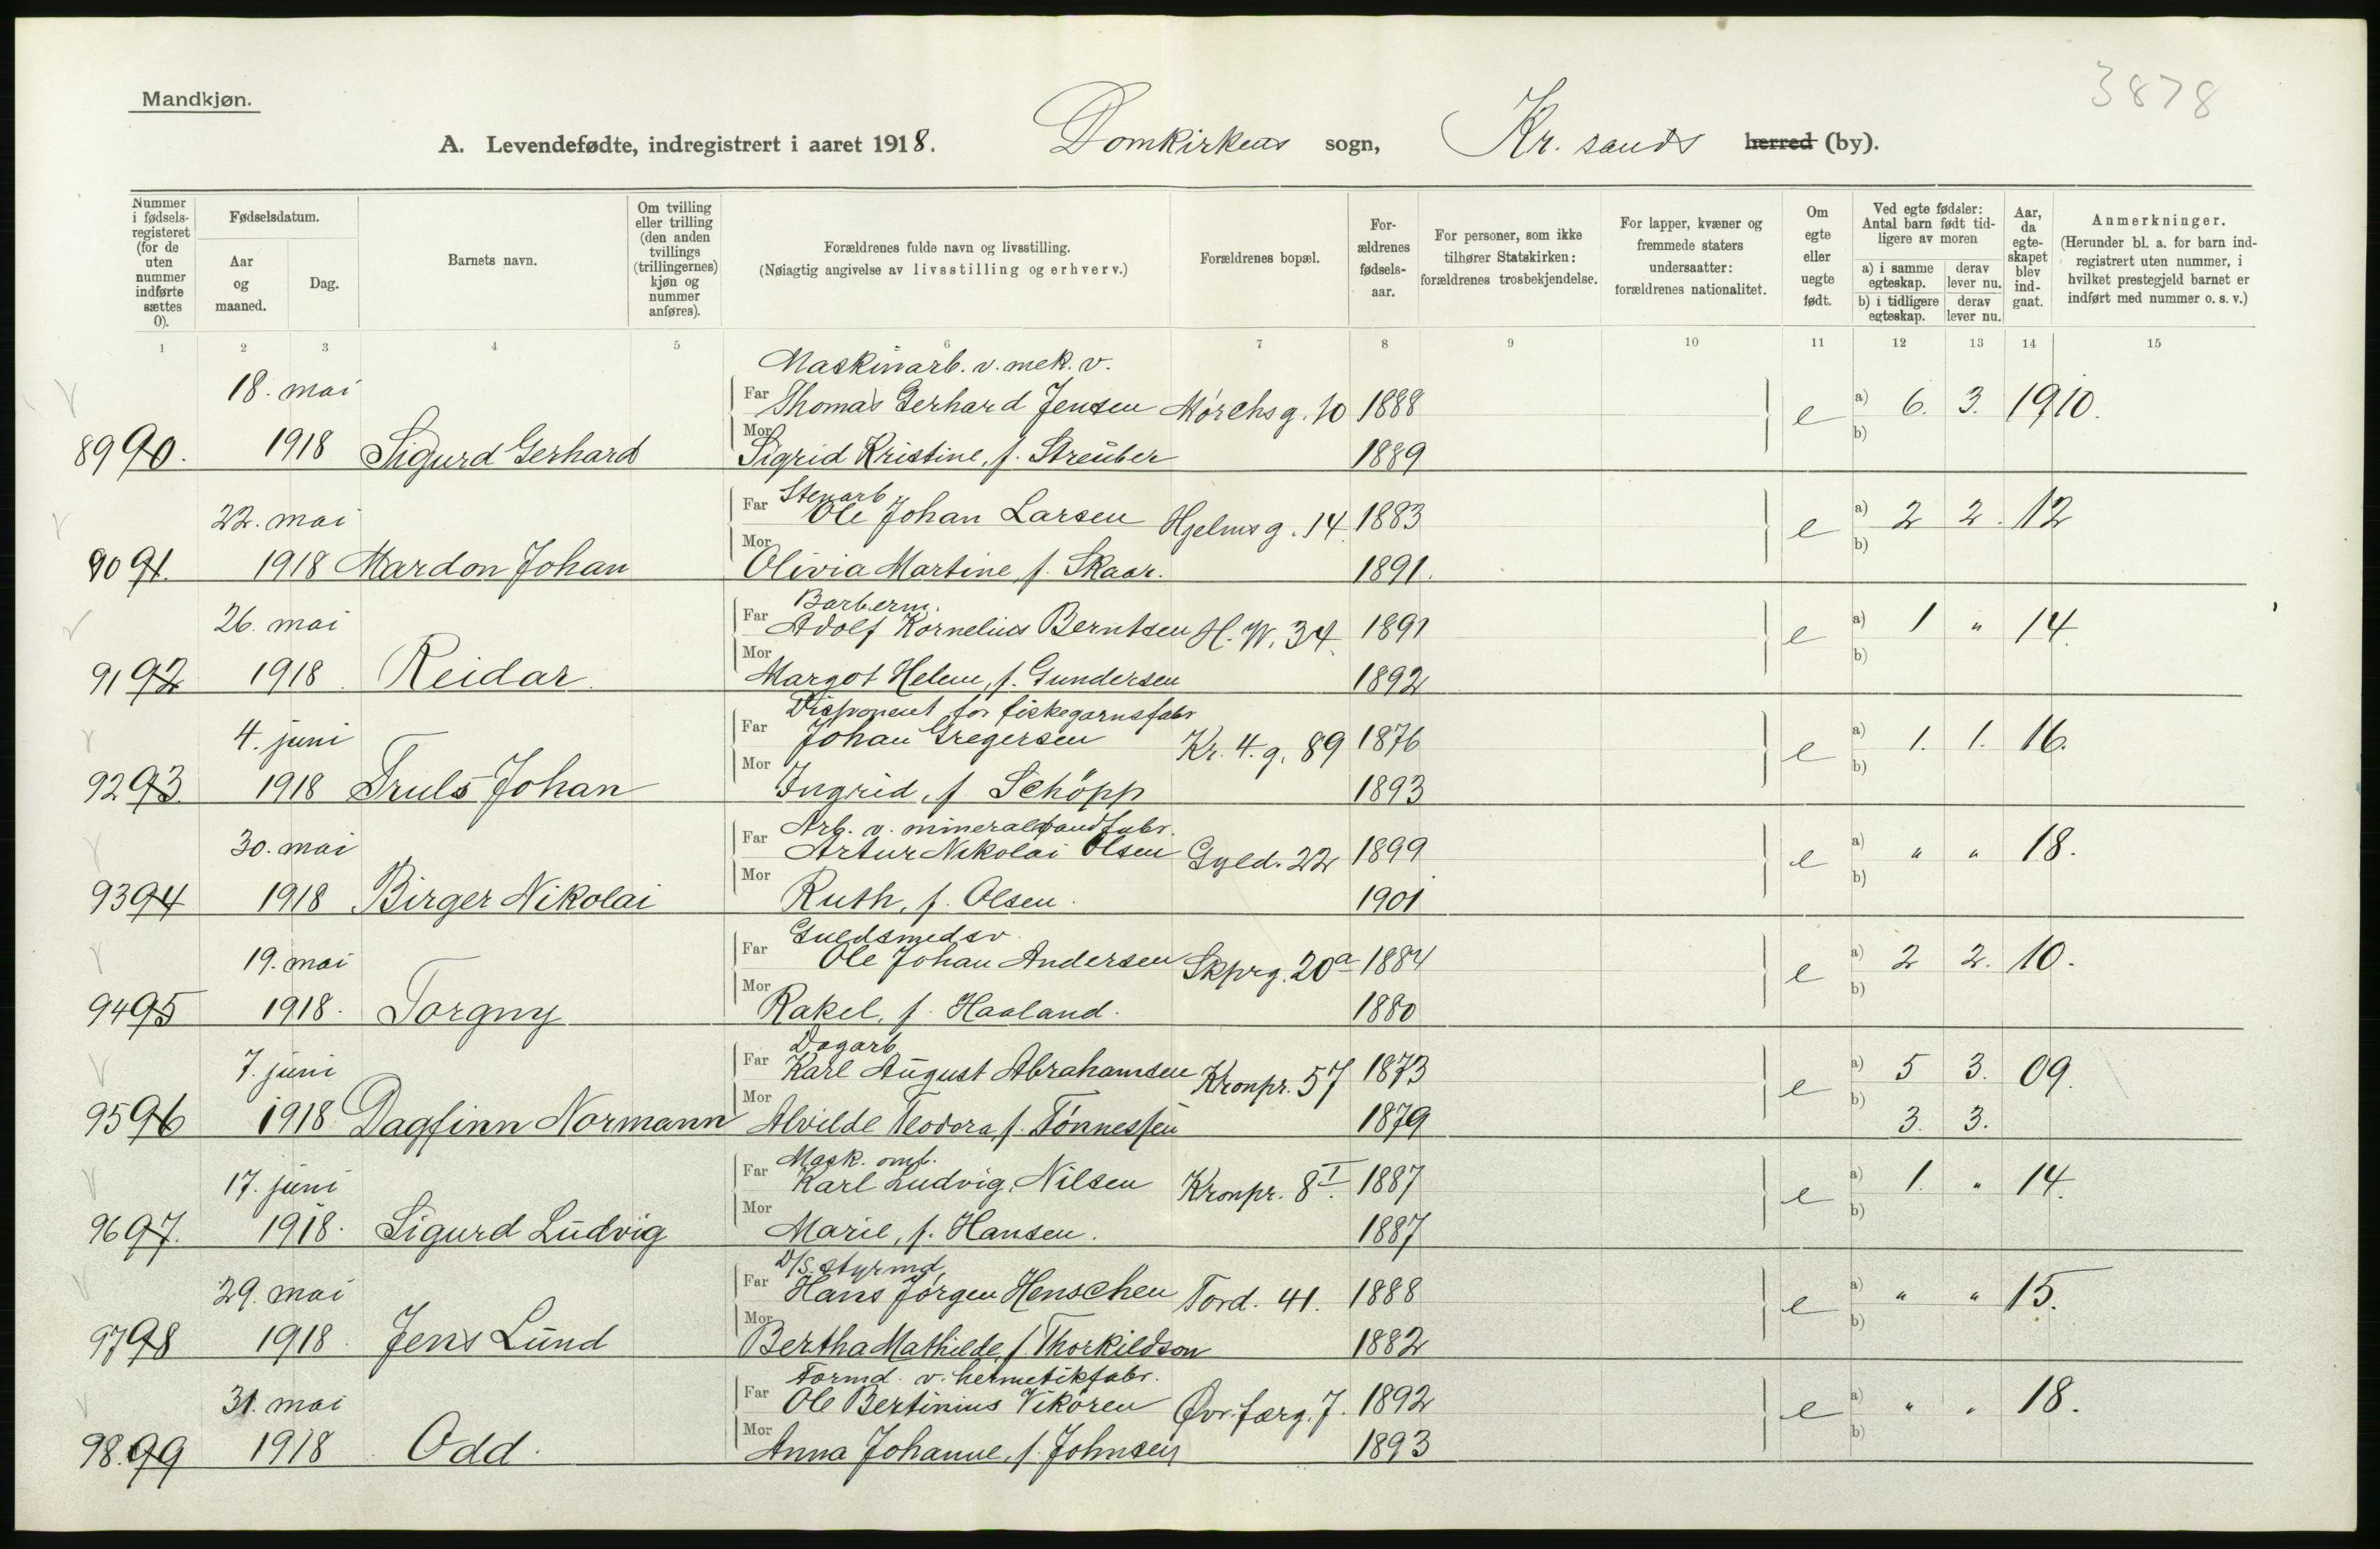 Mandkjøn.
3878
A. Levendefødte, indregistrert i aaret 1918. Domkirkens sogn, Kr. sands herred (by).
Nummer i fødsels-registeret (for de uten nummer indførte sættes 0).
Fødselsdatum.
Aar og maaned.
Dag.
Barnets navn.
Om tvilling eller trilling (den anden tvillings (trillingernes) kjøn og nummer anføres).
Forældrenes fulde navn og livsstilling.
(Nøiagtig angivelse av livsstilling og erhverv.)
Forældrenes bopæl.
For-ældrenes fødsels-aar.
For personer, som ikke tilhører Statskirken: forældrenes trosbekjendelse.
For lapper, kvæner og fremmede staters undersaatter: forældrenes nationalitet.
Om egte eller uegte født.
Ved egte fødsler: Antal barn født tid-ligere av moren
a) i samme egteskap.
derav lever nu.
b) i tidligere egteskap.
derav lever nu.
Aar, da egte-skapet blev ind-gaat.
Anmerkninger.
(Herunder bl. a. for barn ind-registrert uten nummer, i hvilket prestegjeld barnet er indført med nummer o. s. v.)
1 2 3 4 5 6 7 8 9 10 11 12 13 14 15
Maskinarb. v. mek. v.
18. mai Far Thomas Gerhard Jensen Mørchsg. 10 1888 e a) 6. 3. 1910.
8990. 1918 Sigurd Gerhard Mor Sigrid Kristine, f. Streuber 1889 b)
Stenarb
22. mai Far Ole Johan Larsen Hjelmsg. 14. 1883 e a) 2 2. 12
9091. 1918 Mardon Johan Mor Olivia Martine, f. Skaar. 1891. b)
Barberm.
26. mai Far Adolf Kornelius Berntsen H. W. 34. 1891 e a) 1 " 14.
9192 1918. Reidar. Mor Margot Helene, f. Gundersen 1892 b)
Disponent for fiskegarnsfabr
4. juni Far Johan Gregersen Kr. 4. g. 89 1876 e a) 1. 1. 16.
9293. 1918 Truls Johan Mor Ingrid, f. Schöpp 1893 b)
Arb. v. mineralvandfabr.
30. mai Far Artur Nikolai Olsen Gyld. 22 1899 e a) " " 18.
9394 1918 Birger Nikolai Mor Ruth, f. Olsen. 1901 b)
Guldsmedsv.
19. mai Far Ole Johan Andersen Skprg. 20a 1884 e a) 2 2. 10.
9495 1918. Torgny Mor Rakel, f. Haaland. 1880 b)
Dagarb
7. juni Far Karl August Abrahamsen Kronpr. 57 1873 e a) 5 3. 09.
9596 1918 Dagfinn Normann Mor Alvilde Teodora, f. Tønnessen 1879 b) 3. 3.
Mask. omb.
17. juni Far Karl Ludvig Nilsen Kronpr. 8 I. 1887 e a) 1. " 14.
9697. 1918. Sigurd Ludvig Mor Marie, f. Hansen. 1887 b)
D/S. styrmd.
29. mai Far Hans Jørgen Henschen Tord. 41. 1888 e a) " " 15.
9798 1918. Jens Lund Mor Bertha Mathilde, f. Thorkildson 1882 b)
Formd. v. hermetikfabr.
31. mai Far Ole Bertinius Vikøren Øvr. færg. 7. 1892 e a) " " 18.
98.99 1918 Odd. Mor Anna Johanne, f. Johnsen 1893 b)